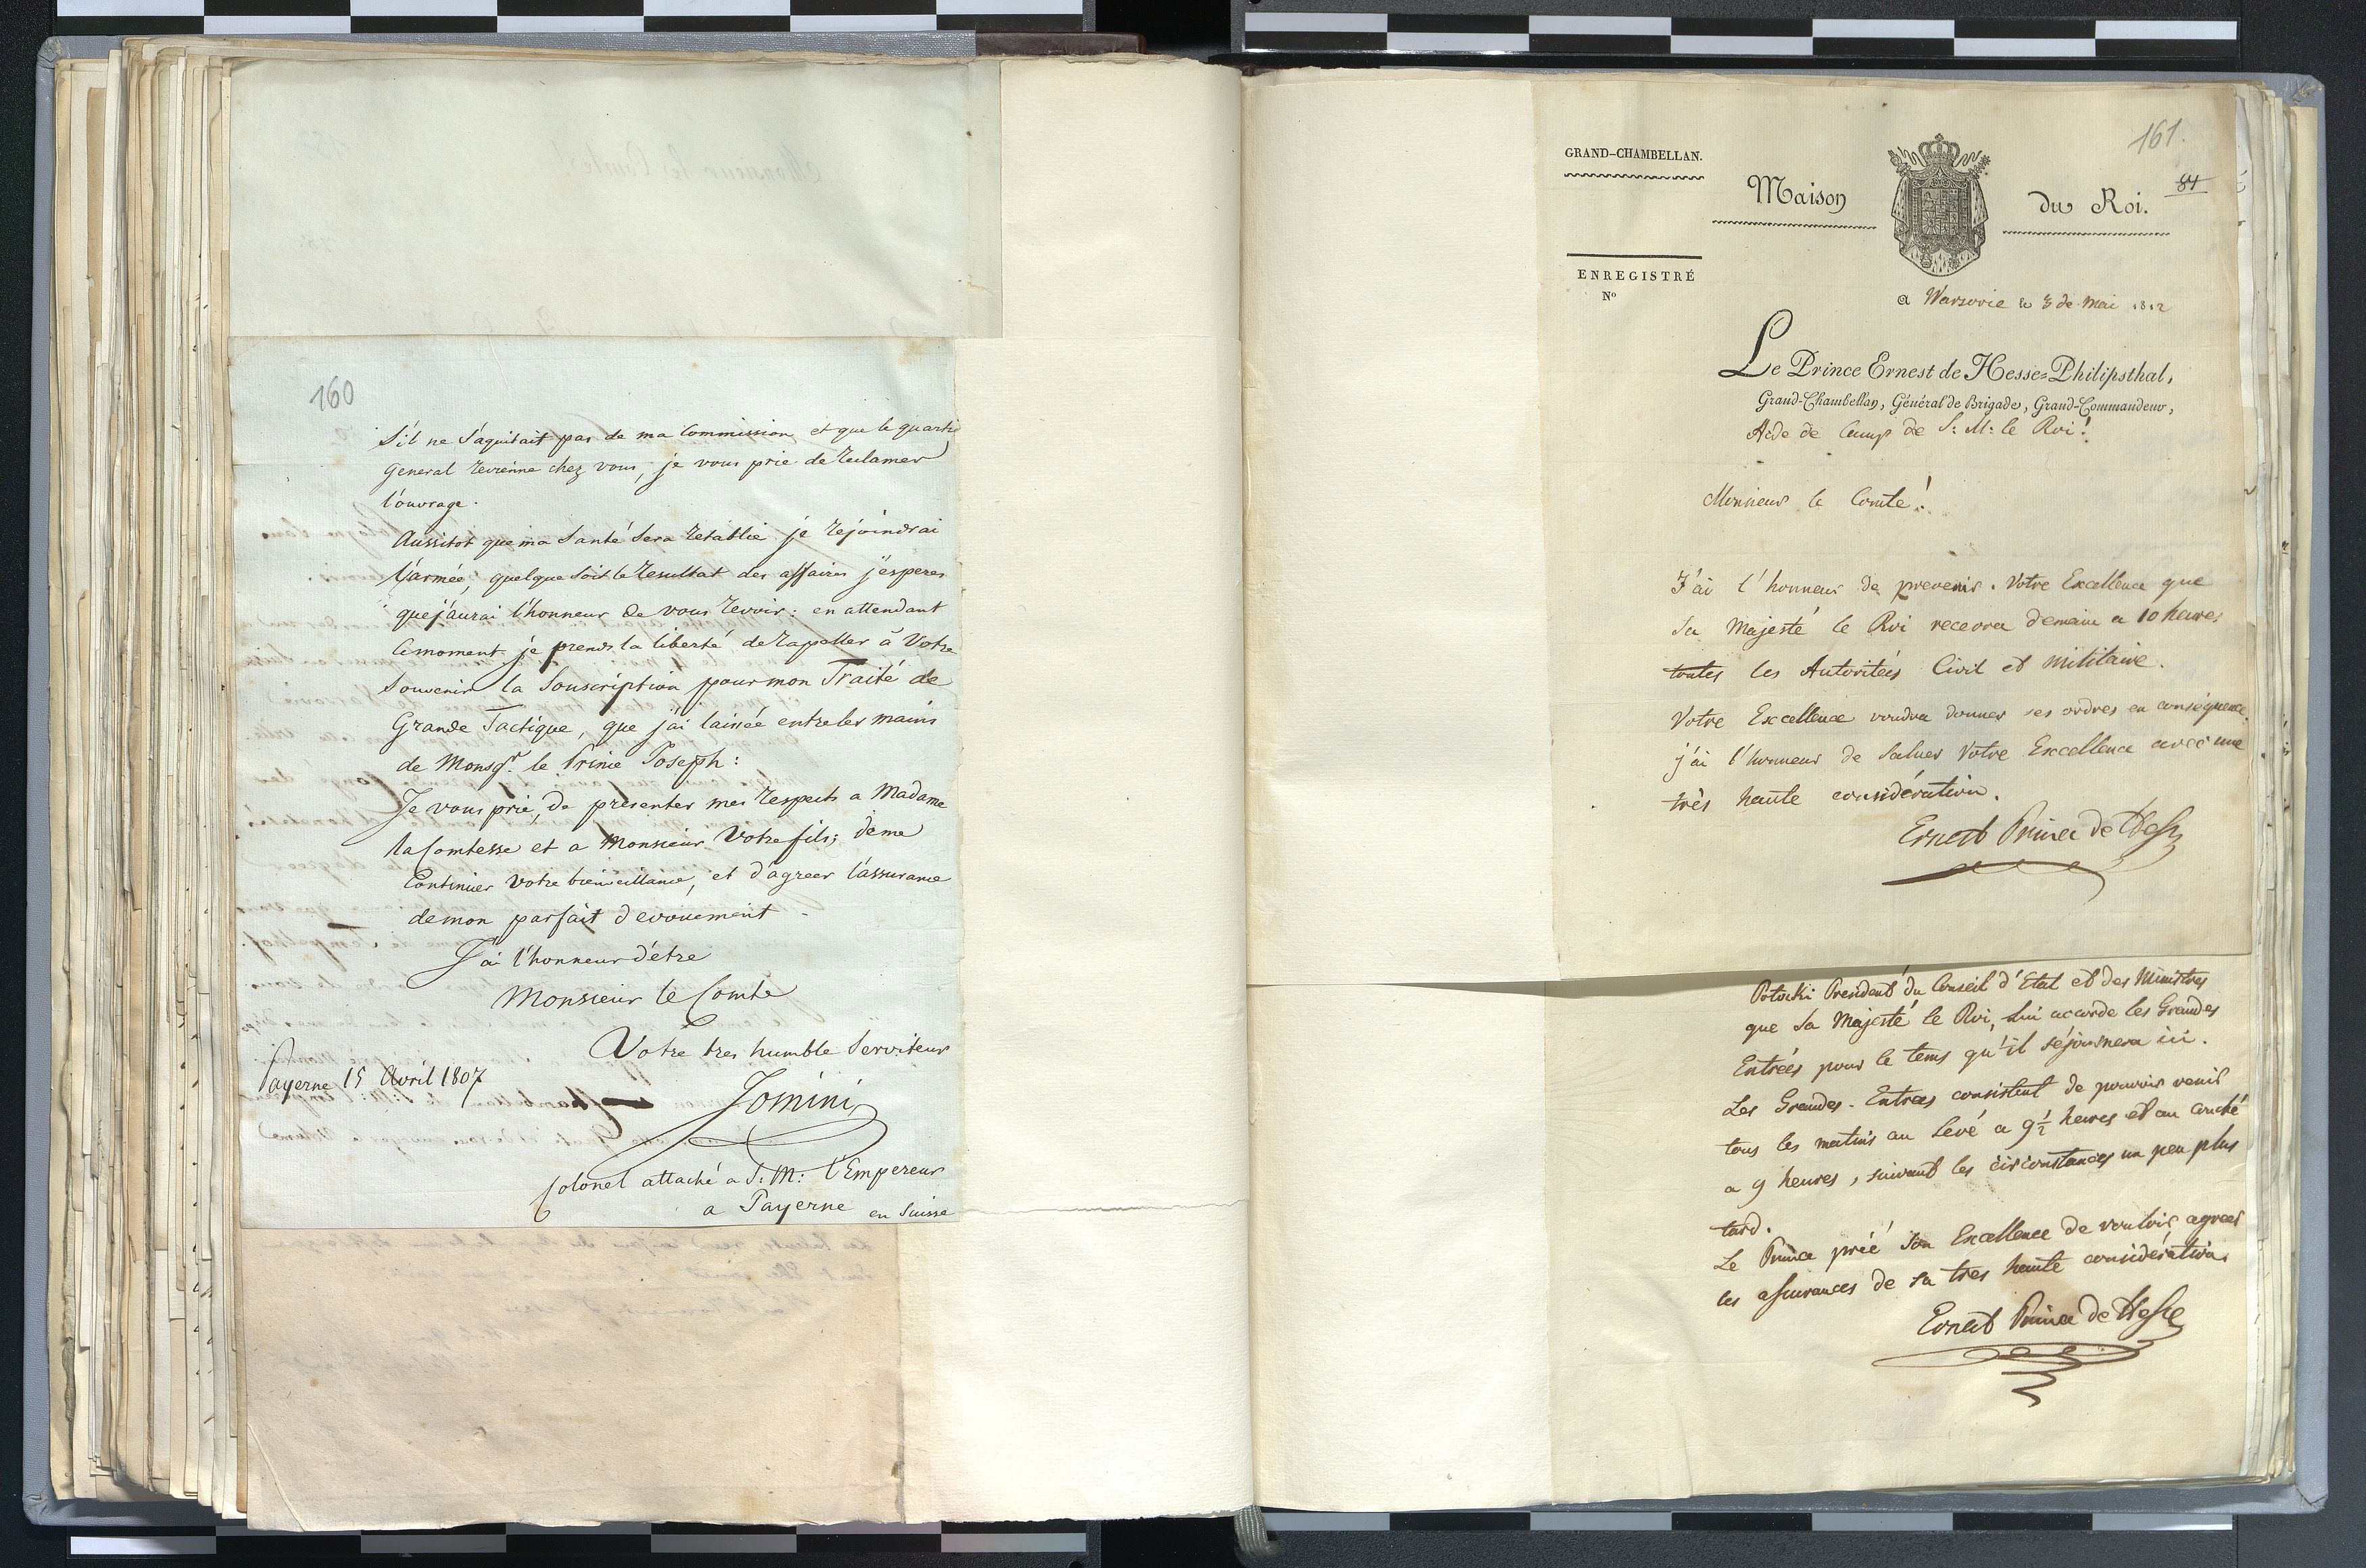 160
S'il ne s'aquitait pas de ma Commission et que le quartier
General revienne chez vous, je vous prie de reclamer
l'ouvrage.
Aussitot que ma Santé Sera retablie je rejoindrai
l'armée, quelque soit le resultat des affaires j'esperes
que j'aurai l'honneur de vous revoir: en attendant
ce moment je prends la liberté de rapeller à Votre
Souvenir la Souscription pour mon Traité de
Grande Tactique, que j'ai laissée entre les mains
de Monsgr. le Prince Poseph:
Je vous prie, de presenter mes respects a Madame
la Comtesse et a Monsieur Votre fils; de me
Continuer Votre bienveillance, et d'agreer l'assurance
de mon parfait devouement.
J'ai l'honneur d'étre
Monsieur le Comte
Votre tres humble Serviteur
Payerne 15 Avril 1807
Jomini
Colonel attaché a S: M: l'Empereur
a Payerne en Suisse
161.
84
GRAND-CHAMBELLAN.
Maison du Roi.
ENREGISTRÉ
No
a Warsovie le 3 de Mai 1812
Le Prince Ernest de Hesse=Philipsthal,
Grand-Chambellan, Général de Brigade, Grand-Commandeur,
Aide de Camp de S: M: le Roi!
Monsieur le Comte!
J'ai l'honneur de prevenir. Votre Excellence que
Sa Majesté le Roi recevra demain a 10 heures
toutes les Autoritées Civil et militaire.
Votre Excellence voudra donner ses ordres en conséquence.
j'ai l'honneur de saluer Votre Excellence avec une
très haute considération.
Ernest Prince de Hesse
Potocki President du Conseil d'Etat et des Ministres
que Sa Majesté le Roi, lui accorde les Grandes
Entrées pour le tems qu'il séjournera ici.
Les Grandes-Entrees consistent de pouvoir venir
tous les matins au levé a 9½ heures et au couché
a 9 heures, suivant les circonstances un peu plus
tard.
Le Prince prié son Excellence de vouloir agreer
les assurances de sa tres haute considération
Ernest Prince de Hesse